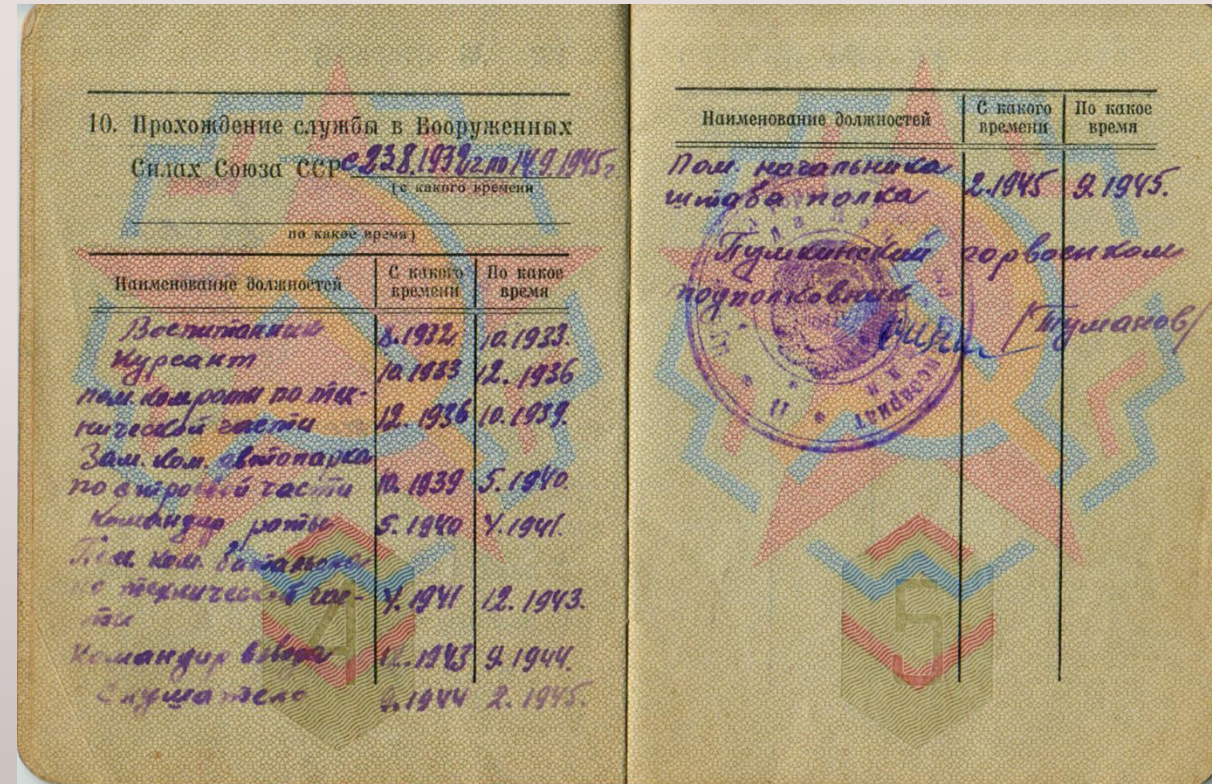 10. Прохождение службы в Вооруженных
Силах Союза ССР с 23.8.1932 г. по 14.9.1945 г.
(с какого времени
по какое время)
Наименование должностей С какого времени По какое время
Воспитанник 8.1932 10.1933.
Курсант 10.1933 12.1936
пом. ком. роты по тех-
нической части 12.1936 10.1939.
Зам. ком. автопарка
по строевой части 10.1939 5.1940.
Командир роты 5.1940 4.1941.
Пом. ком. батальона
по технической час-
ти 4.1941 12.1943.
Командир взвода 12.1943 9.1944.
Слушатель 9.1944 2.1945.
4
Наименование должностей С какого времени По какое время
Пом. начальника
штаба полка 2.1945 9.1945.
горвоенком
подполковник
/Туманов/
5